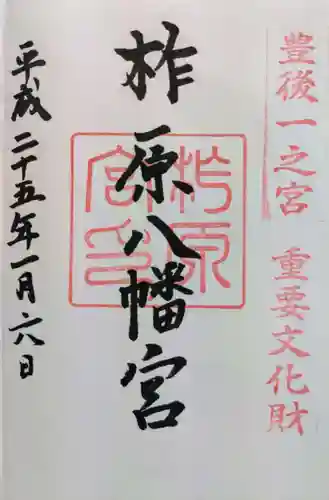 豊後一之宮 重要文化財
柞原八幡宮
柞原宮印
平成二十五年一月六日